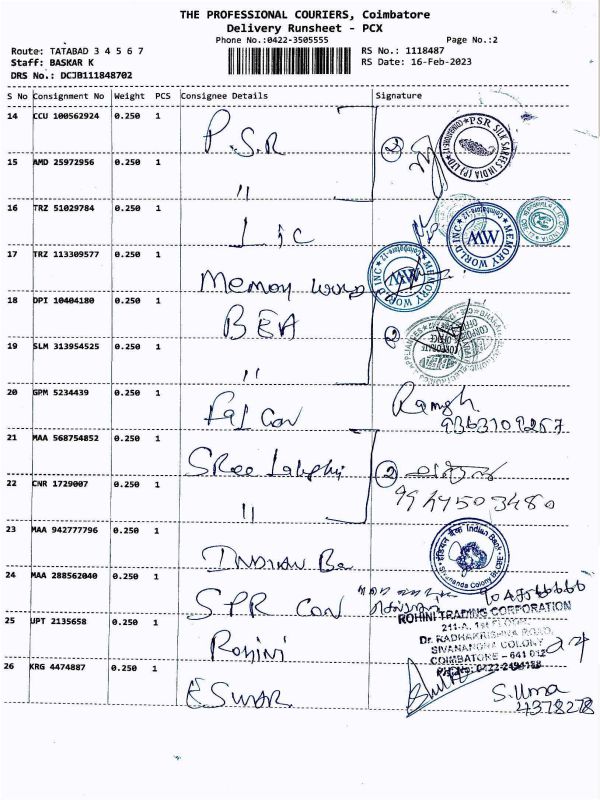 THE PROFESSIONAL COURIERS, Coimbatore
Delivery Runsheet - PCX
Phone No.:0422-3505555
Page No.:2
Route: TATABAD 3 4 5 6 7
RS No.: 1118487
Staff: BASKAR K
RS Date: 16-Feb-2023
DRS No.: DCJB111848702
S No Consignment No Weight PCS Consignee Details Signature
14 CCU 100562924 0.250 1 P.S.R 2
PSR SILK SAREES INDIA (P) LTD
15 AMD 25972956 0.250 1 "
16 TRZ 51029784 0.250 1 Lic
MEMORY WORLD INC Coimbatore-12 MW
17 TRZ 113309577 0.250 1 Memory World
MEMORY WORLD INC Coimbatore-12 MW
18 DPI 10404180 0.250 1 BEA 2
CORPORATE OFFICE
19 SLM 313954525 0.250 1 "
20 GPM 5234439 0.250 1 Falcon Ramesh
9363109267
21 MAA 568754852 0.250 1 Sree 2
22 CNR 1729007 0.250 1 " 9944503480
23 MAA 942777796 0.250 1 Indian Ba
इंडियन बैंक Indian Bank
Sivananda Colony
24 MAA 288562040 0.250 1 SPR Con
25 UPT 2135658 0.250 1 Rohini
ROHINI TRADING CORPORATION
211-A, 1st FLOOR,
Dr. RADHAKRISHNA ROAD,
SIVANANDA COLONY
COIMBATORE - 641 012
PHONE: 0422-2494188
26 KRG 4474887 0.250 1 ESWAR S.Uma
4378278